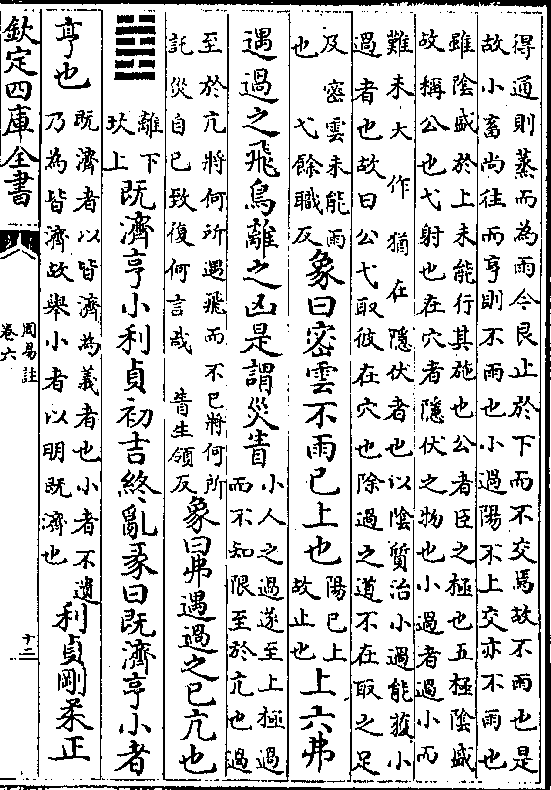 得通則蒸而為雨今艮止於下而不交焉故不雨也是
故小畜尚往而亨則不雨也小過陽不上交亦不雨也
雖陰盛於上未能行其施也公者臣之極也五極陰盛
故稱公也弋射也在穴者隱伏之物也小過者過小而
難未大作猶在隱伏者也以陰質治小過能獲小
過者也故曰公弋取彼在穴也除過之道不在取之足
及密雲未能雨
也弋餘職反
象曰密雲不雨已上也
陽已上
故止也
上六弗
遇過之飛鳥離之凶是謂災眚
小人之過遂至上極過
而不知限至於亢也過
至於亢將何所遇飛而不已將何所
託災自已致復何言哉 眚生領反
象曰弗遇過之已亢也
䷾
離下
坎上
既濟亨小利貞初吉終亂彖曰既濟亨小者
亨也
既濟者以皆濟為義者也小者不遺
乃為皆濟故舉小者以明既濟也
利貞剛柔正
欽定四庫全書
周易註
卷六
十二